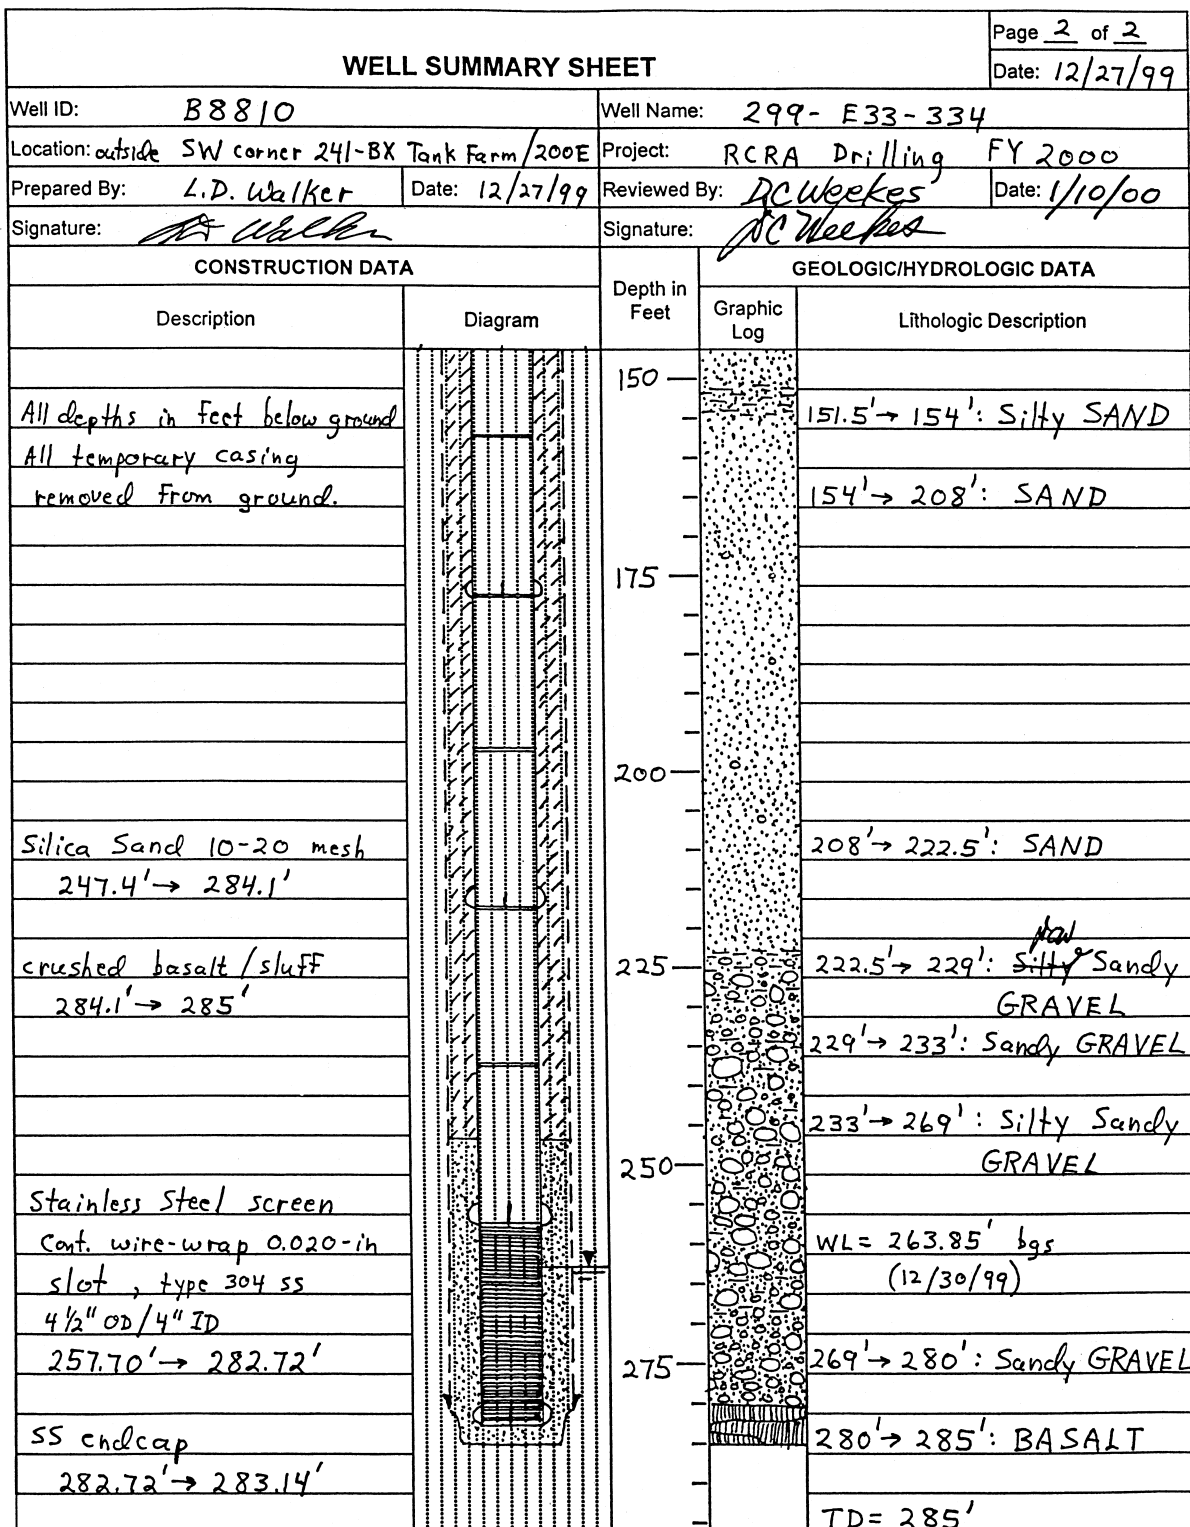 Page 2 of 2
WELL SUMMARY SHEET
Date: 12/27/99
Well ID: B8810
Well Name: 299-E33-334
Location: outside SW corner 241-BX Tank Farm/200E
Project: RCRA Drilling FY 2000
Prepared By: L.D. Walker Date: 12/27/99
Reviewed By: DC Weekes Date: 1/10/00
Signature: LD Walker
Signature: DC Weekes
CONSTRUCTION DATA
GEOLOGIC/HYDROLOGIC DATA
Description
Diagram
Depth in Feet
Graphic Log
Lithologic Description
All depths in feet below ground
All temporary casing
removed from ground.
Silica Sand 10-20 mesh
247.4'→ 284.1'
crushed basalt/sluff
284.1'→ 285'
Stainless Steel screen
Cont. wire-wrap 0.020-in
slot, type 304 ss
4 1/2" OD/4" ID
257.70'→ 282.72'
SS endcap
282.72'→ 283.14'
150
175
200
225
250
275
151.5'→ 154': Silty SAND
154'→ 208': SAND
208'→ 222.5': SAND
222.5'→ 229': Silty Sandy
GRAVEL
229'→ 233': Sandy GRAVEL
233'→ 269': Silty Sandy
GRAVEL
WL= 263.85' bgs
(12/30/99)
269'→ 280': Sandy GRAVEL
280'→ 285': BASALT
TD= 285'